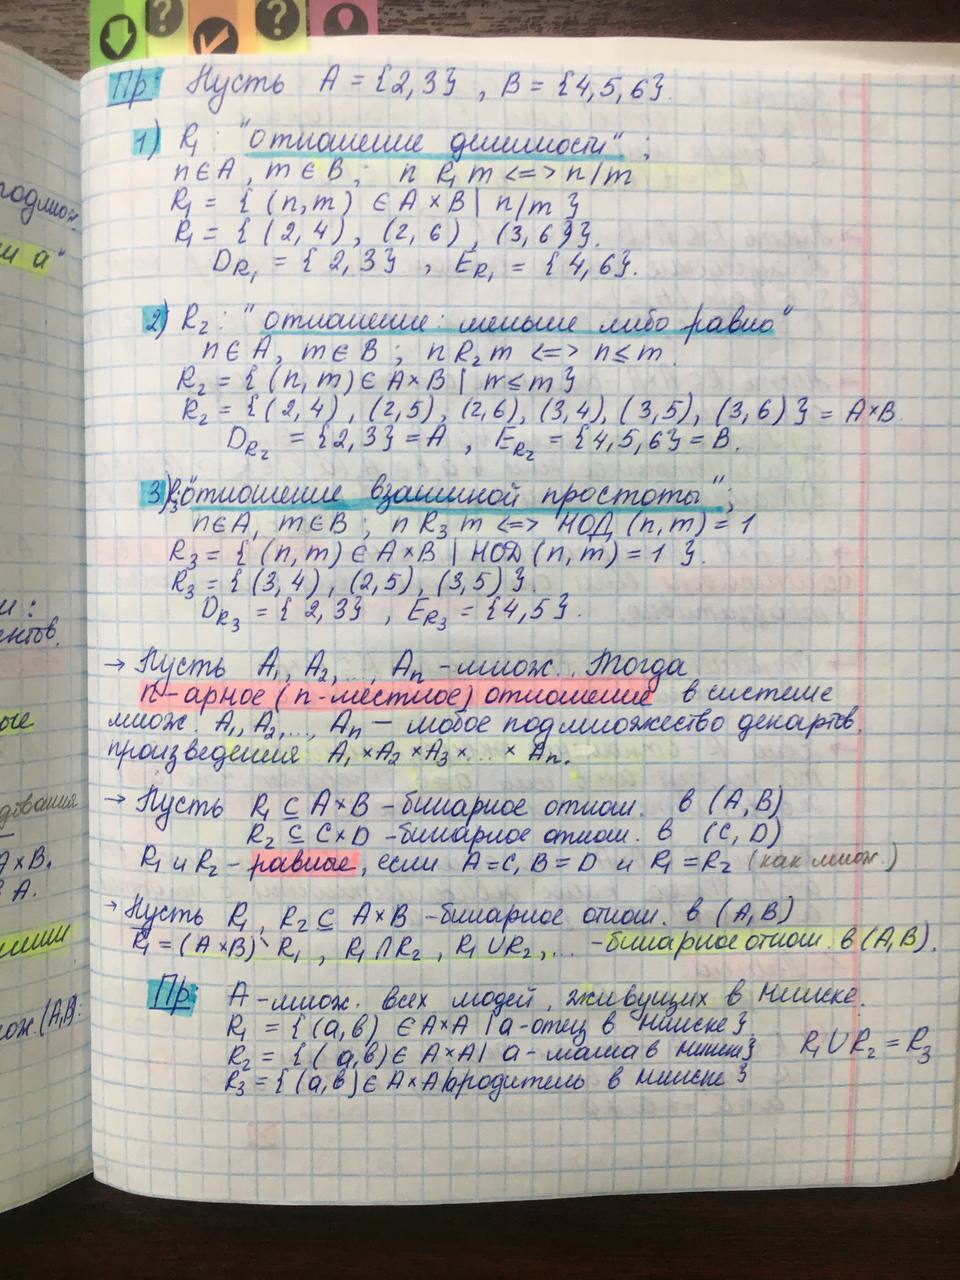 Пр: Пусть A = {2,3} , B = {4,5,6}.
1) R₁: "отношение делимости" ;
n∈A , m∈B ; n R₁ m <=> n/m
R₁ = { (n,m) ∈ A×B | n/m }
R₁ = { (2,4) , (2,6) , (3,6)}.
D_R₁ = {2,3} , E_R₁ = {4,6}.
2) R₂ : "отношение: меньше либо равно"
n∈A, m∈B ; n R₂ m <=> n≤m.
R₂ = { (n, m) ∈ A×B | n≤m }
R₂ = {(2,4) , (2,5), (2,6), (3,4), (3,5), (3,6) } = A×B.
D_R₂ = {2,3} = A , E_R₂ = {4,5,6} = B.
3) R₃: "отношение взаимной простоты" ;
n∈A, m∈B ; n R₃ m <=> НОД (n,m) = 1
R₃ = { (n,m) ∈ A×B | НОД (n,m) = 1 }.
R₃ = { (3,4) , (2,5) , (3,5) }.
D_R₃ = {2,3} , E_R₃ = {4,5}.
→ Пусть A₁, A₂, ..., Aₙ - множ. Тогда
n-арное (n-местное) отношение в системе
множ. A₁, A₂, ..., Aₙ — любое подмножество декартов.
произведения A₁×A₂×A₃×...× Aₙ.
→ Пусть R₁ ⊆ A×B - бинарное отнош. в (A,B)
R₂ ⊆ C×D - бинарное отнош. в (C, D)
R₁ и R₂ - равные, если A=C, B=D и R₁=R₂ (как множ.)
→ Пусть R₁, R₂ ⊆ A×B - бинарное отнош. в (A,B)
R₁ = (A×B) \ R₁ , R₁∩R₂ , R₁∪R₂, ... - бинарное отнош. в (A,B).
Пр: A - множ. всех людей, живущих в Минске.
R₁ = {(a,b) ∈ A×A | a-отец b в Минске}
R₂ = {(a,b) ∈ A×A | a-мама b в Минске} R₁∪R₂ = R₃
R₃ = {(a,b) ∈ A×A | a родитель b в Минске}